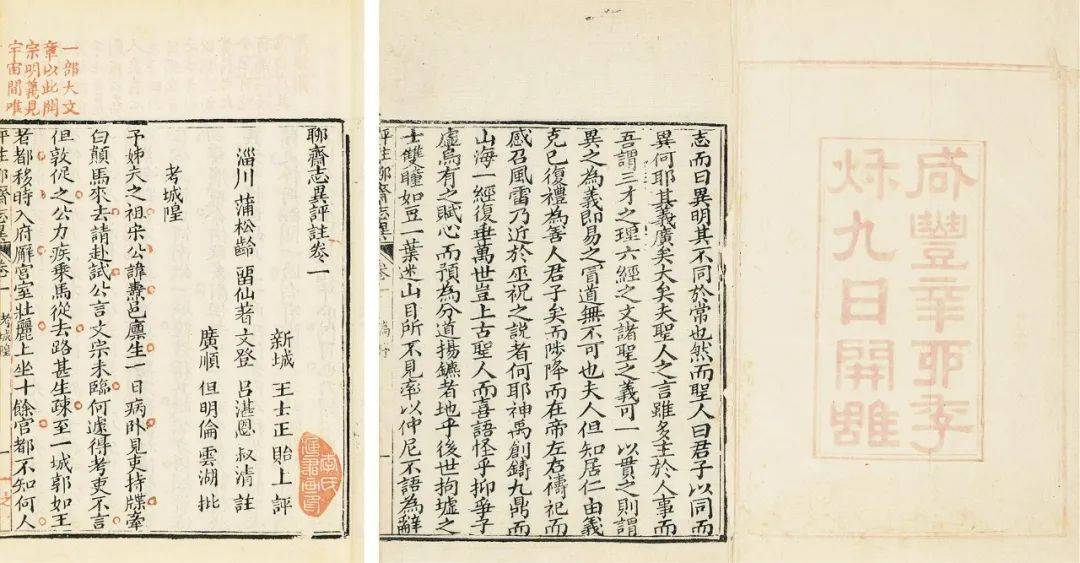 咸豐辛酉季
秌九日開雕
志而曰異明其不同於常也然而聖人曰君子以同而
異何耶其義廣矣大矣夫聖人之言雖多主於人事而
吾謂三才之理六經之文諸聖之義可一以貫之則謂
異之為義即易之冒道無不可也夫人但知居仁由義
克已復禮為善人君子矣而陟降而在帝左右禱祀而
感召風雷乃近於巫祝之說者何耶神禹創鑄九鼎而
山海一經復垂萬世豈上古聖人而喜語怪乎抑爭子
虛烏有之賦心而預為分道揚鑣者地乎後世拘墟之
士雙瞳如豆一葉迷山目所不見率以仲尼不語為辭
聊齋志異評註卷一
新城 王士正貽上 評
淄川 蒲松齡 留仙著 文登 呂湛恩 叔清 註
廣順 但明倫 雲湖 批
考城隍
予姊夫之祖宋公諱燾邑廩生一日病臥見吏持牒牽
白顛馬來云請赴試公言文宗未臨何遽得考吏不言
但敦促之公力疾乘馬從去路甚生疎至一城郭如王
者都移時入府廨宮室壯麗上坐十餘官都不知何人
一部大文
章以此開
宗明義見
宇宙間唯